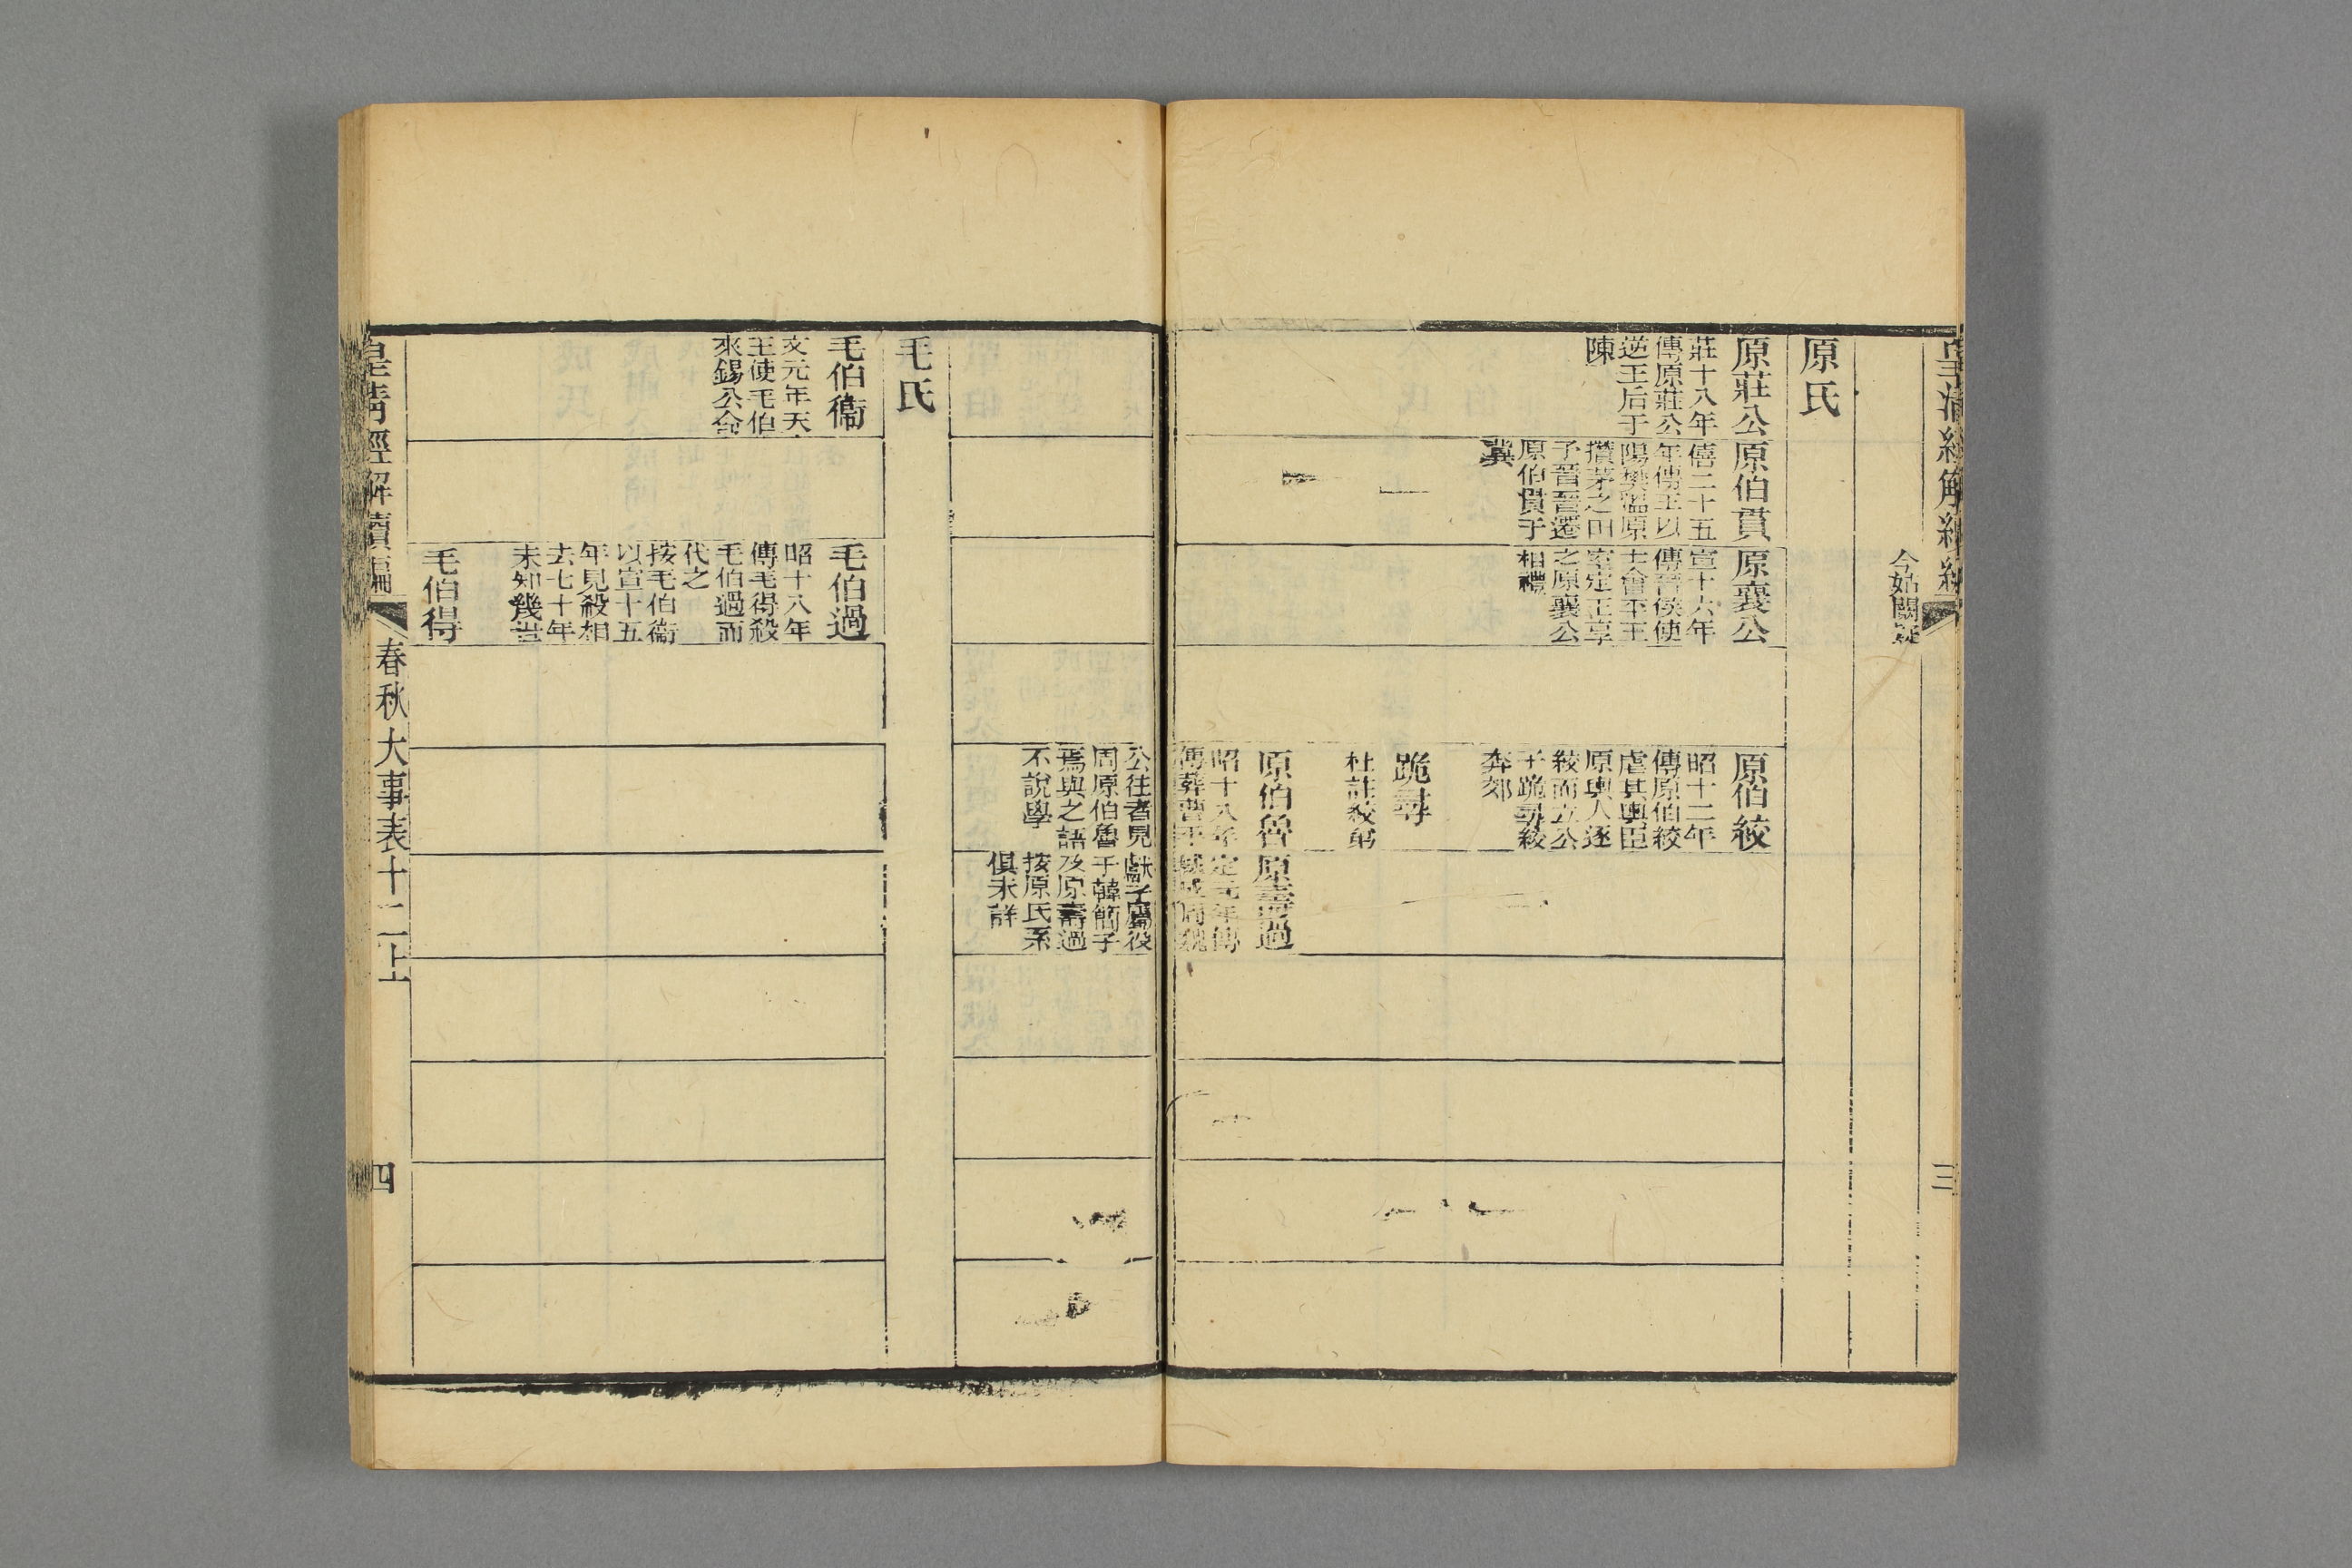 今姑闕疑
原氏
原莊公
莊十八年
傳原莊公
逆王后于
陳
原伯貫
僖二十五
年傳王以
陽樊溫原
攢茅之田
予晉晉遷
原伯貫于
冀
原襄公
宣十六年
傳晉侯使
士會平王
室定王享
之原襄公
相禮
原伯絞
昭十二年
傳原伯絞
虐其輿臣
原輿人逐
絞而立公
子跪尋絞
奔郊
跪尋
杜註絞弟
原伯魯
昭十八年
傳葬曹平
公往者見
周原伯魯
焉與之語
不說學
原壽過
定元年傳
城成周魏
獻子屬役
于韓簡子
及原壽過
按原氏系
俱未詳
毛氏
毛伯衞
文元年天
王使毛伯
來錫公命
毛伯過
昭十八年
傳毛得殺
毛伯過而
代之
按毛伯衞
以宣十五
年見殺相
去七十年
未知幾世
毛伯得
皇清經解續編
春秋大事表十二上
四
三